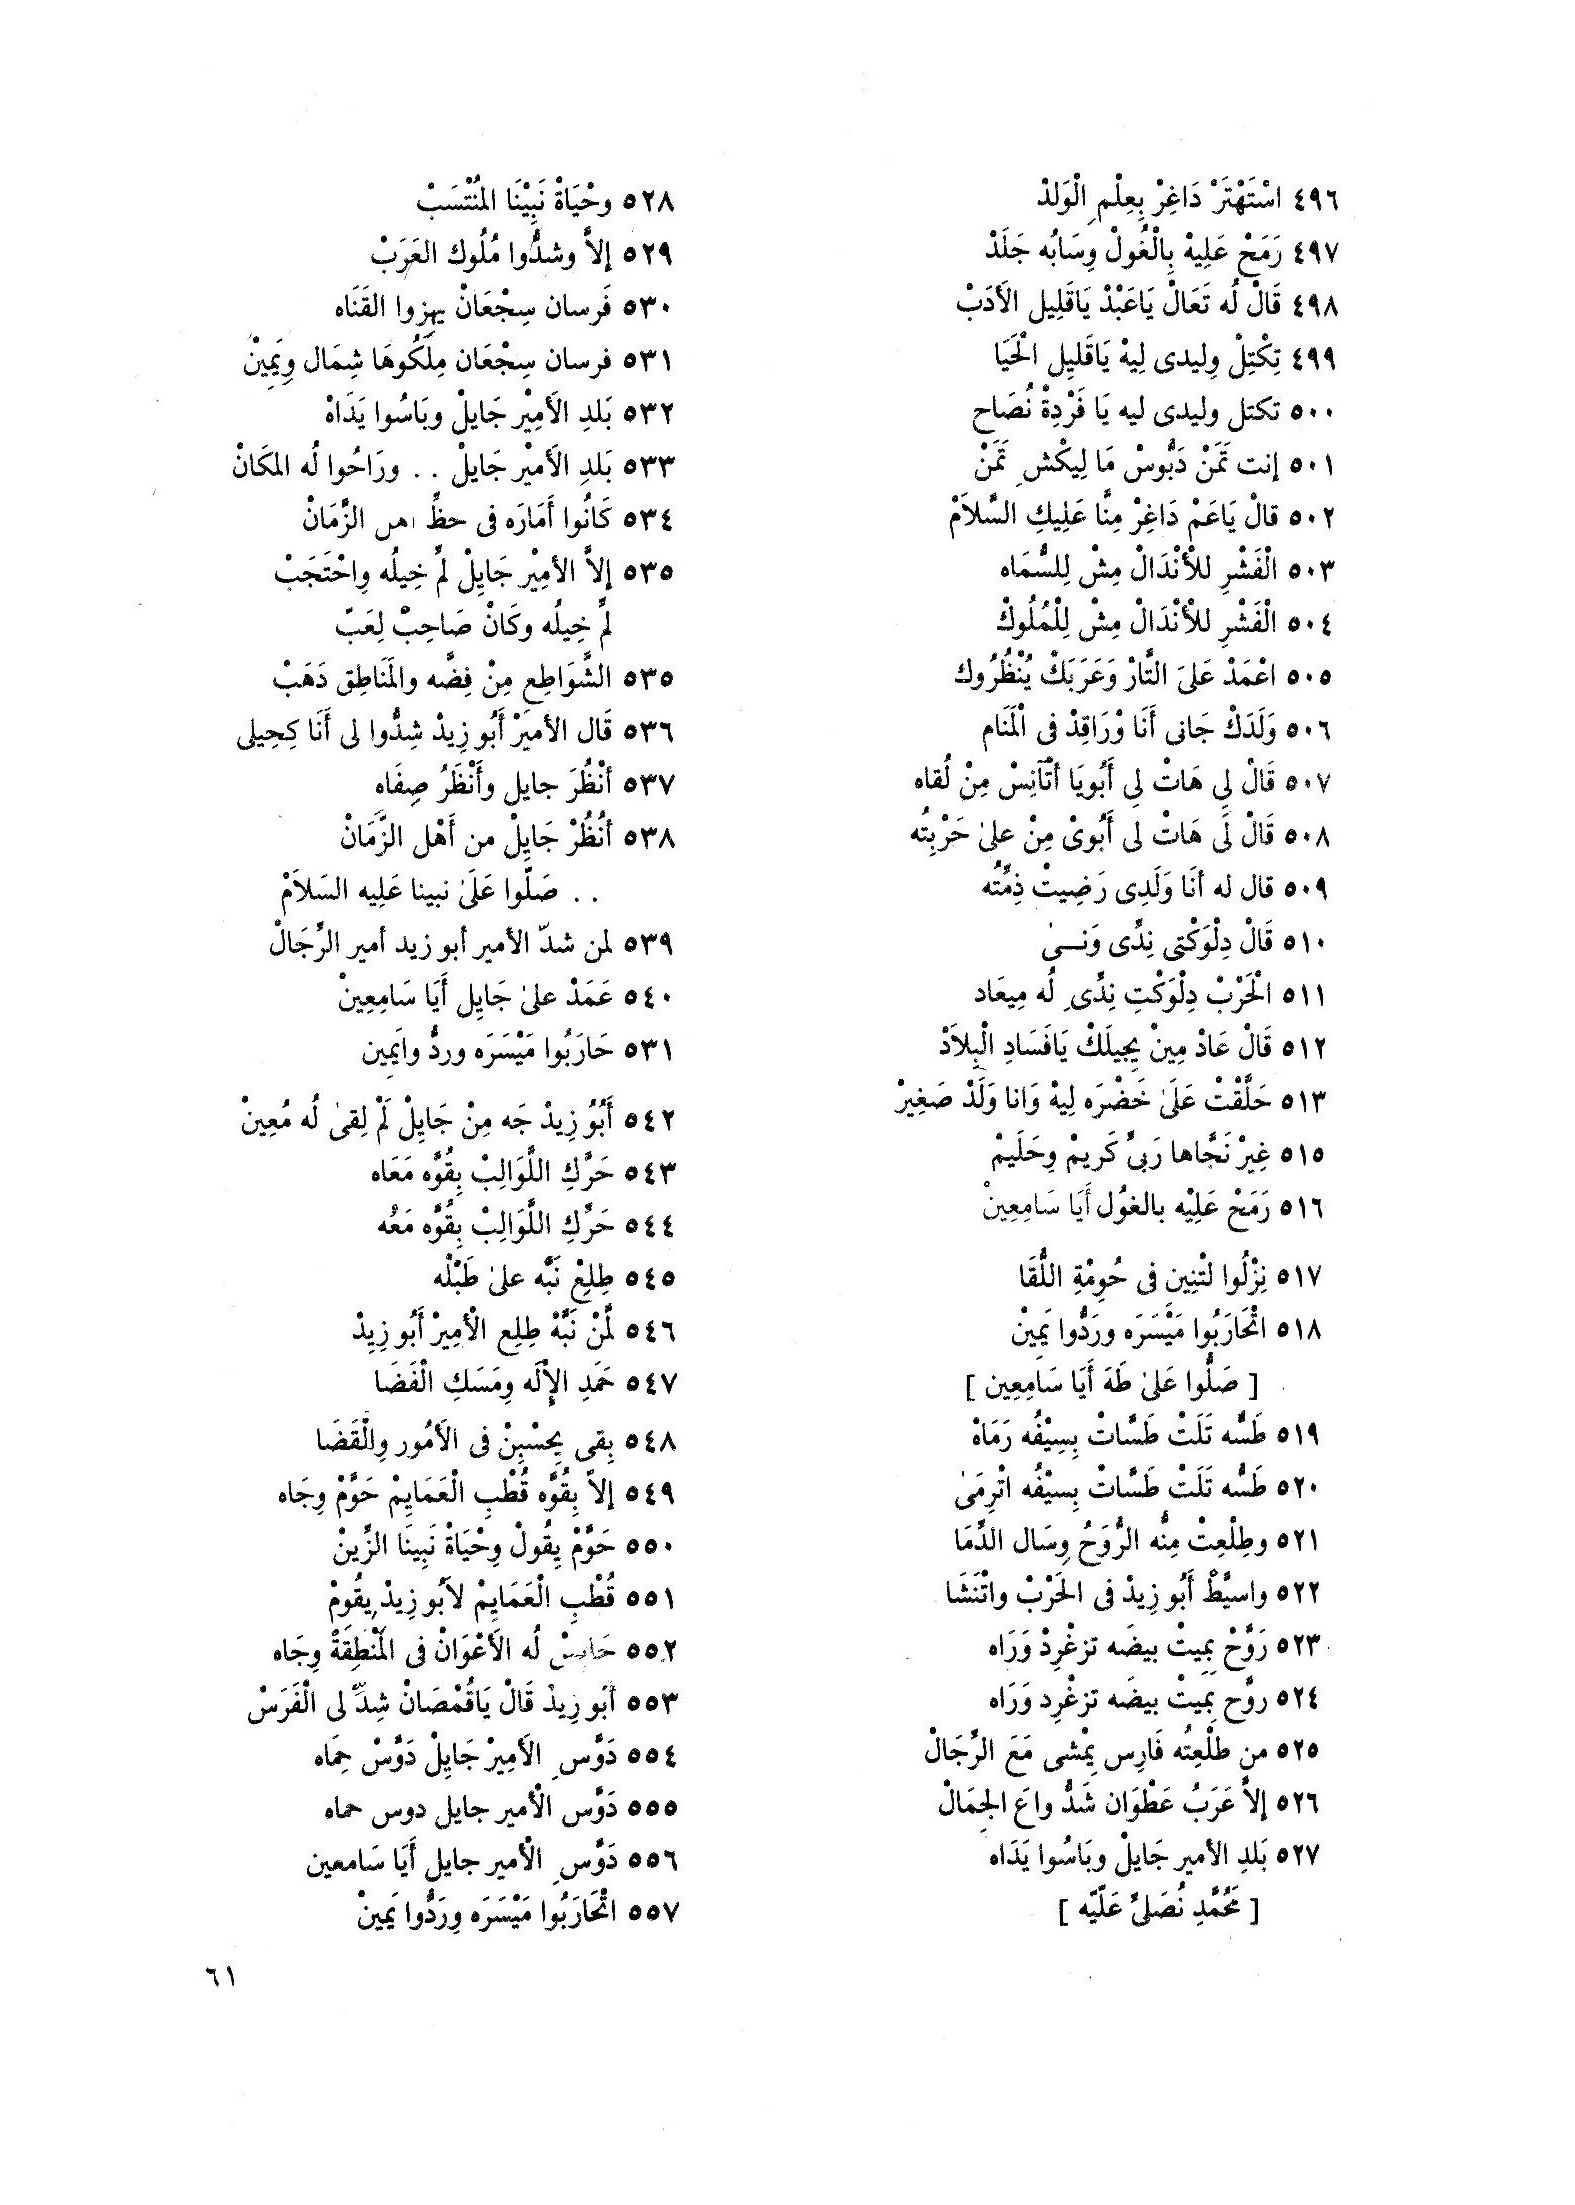 ٤٩٦ اسْتَهْتَرْ دَاغِرْ بِعِلْمِ الْوَلدْ
٤٩٧ رَمَحْ عَلِيهْ بِالْغُولْ وِسَابُه جَلَدْ
٤٩٨ قَالْ لُه تَعَالْ يَاعَبْدْ يَاقَلِيل الأَدَبْ
٤٩٩ تِكْتِلْ وِليدى لِيهْ يَاقَلِيِل الْحَيَا
٥٠٠ تكتل وليدى ليه يَا فَرْدِةْ نُصَاح
٥٠١ إنت تَمَنْ دَبُّوسْ مَا لِيكْش تَمَنْ
٥٠٢ قالْ يَاعَمْ دَاغِرْ مِنَّا عَلِيكِ السَّلاَمْ
٥٠٣ الْفَشْرِ للْأنْدَالْ مِشْ لِلسُّمَاه
٥٠٤ الْفَشْرِ للْأنْدَالْ مِشْ لِلْمُلُوكْ
٥٠٥ اعْمَدْ عَلىَ التَّارْ وَعَرَبَكْ يُنْظُرُوك
٥٠٦ وَلَدَكْ جَانى أَنَا وْرَاقِدْ فى الْمَنَام
٥٠٧ قَالْ لِى هَاتْ لِى أَبُويَا أتْآنِسْ مِنْ لُقاه
٥٠٨ قَالْ لِى هَاتْ لى أَبُوىْ مِنْ علىٰ حَرْبِتُه
٥٠٩ قال له أنَا وَلَدِى رَضِيتْ ذِمِّتُه
٥١٠ قَالْ دِلْوَكْتى نِدِّى وَنــىٰ
٥١١ الْحَرْبْ دِلْوَكْتِ نِدِّى لُه مِيعَاد
٥١٢ قَالْ عَادْ مِينْ يِجِيلَكْ يَافَسَادِ الْبِلاَدْ
٥١٣ حَلَّقْتْ عَلَىٰ خَضْرَه لِيهْ وَانا وَلَدْ صَغِيرْ
٥١٥ غِيرْ نَجَّاها رَبىِّ كَرِيمْ وِحَلَيمْ
٥١٦ رَمَحْ عَلِيْه بالغُول أَيَا سَامِعِينْ
٥١٧ نِزْلُوا لتْنِين فى حُومْةِ اللُّقَا
٥١٨ اتْحَارَبُوا مَيْسَرَه ورَدُّوا يَمِينْ
[ صَلُّوا عَلىٰ طَهَ أَيَا سَامِعِين ]
٥١٩ طَسُّه تَلَتْ طَسَّاتْ بِسِيْفُه رَمَاهْ
٥٢٠ طَسُّه تَلَتْ طَسَّاتْ بِسِيْفُه اتْرِمَىٰ
٥٢١ وطِلْعِتْ مِنُّه الرُّوَحُ وِسَال الدِّمَا
٥٢٢ واسيَّطْ أَبُو زِيدْ فى الحَرْبْ واتْنَشَا
٥٢٣ رَوَّحْ بِمِيتْ بيضَه تزغْرِدْ وَرَاه
٥٢٤ روَّح بِمِيتْ بيضَه تزغْرِد وَرَاه
٥٢٥ من طلْعِتُه فَارِس يِمْشى مَعَ الرِّجَالْ
٥٢٦ إلاَّ عَرَبُ عَطْوَان شَدُّ واعَ الجِمَالْ
٥٢٧ بَلدِ الأمير جَايلْ وبَاسُوا يَدَاه
[ مُحَمَّدِ نُصَلىِّ عَلَيّه ]
٥٢٨ وحْيَاةْ نَبِيْنَا المُنْتَسَبْ
٥٢٩ إلاَّ وشدُّوا مُلُوك العَرَبْ
٥٣٠ فَرسان سِجْعَانْ يهِزوا القَنَاه
٥٣١ فرسان سِجْعَان مِلَكُوهَا شِمَال وِيَمِينْ
٥٣٢ بَلدِ الأَمِيْر جَايلْ وبَاسُوا يَدَاهْ
٥٣٣ بَلدِ الأَمِيْر جَايلْ . . ورَاحُوا لُه المكَانْ
٥٣٤ كَانُوا أَمَارَه فى حظِّ اهل الزَّمَانْ
٥٣٥ إلاَّ الأمِيْر جَايِلْ لَمِّ خِيلُه وِاحْتَجَبْ
لَمِّ خِيلُه وكَانْ صَاحِبْ لِعَبّ
٥٣٥ الشَّوَاطِع مِنْ فِضَّه والمَنَاطِق دَهَبْ
٥٣٦ قَال الأميَرْ أَبُو زِيدْ شِدُّوا لى أَنَا كِحِيلى
٥٣٧ أنْظُرَ جايل وأَنْظَرُ صِفَاه
٥٣٨ أنْظُرْ جَايِلْ من أَهْل الزَّمَانْ
. . صَلَّوا عَلَىٰ نبينا عَلِيه السَلاَمْ
٥٣٩ لمن شدّ الأمير أبو زيد أمير الرِّجَالْ
٥٤٠ عَمَدْ علىٰ جَايِل أَيَا سَامِعِينْ
٥٣١ حَارَبُوا مَيْسَرَه وردُّ وايَمِين
٥٤٢ أَبُو زِيدْ جَه مِنْ جَايِلْ لَمْ لِقىٰ لُه مُعِينْ
٥٤٣ حَرَّكِ اللَّوَالِبْ بِقُوَّه مَعَاه
٥٤٤ حَرَّكِ اللَّوَالِبْ بِقُوَّه مَعُه
٥٤٥ طِلِعْ نَبَّه علىٰ طَبْلُه
٥٤٦ لَمَّنْ نَبَّهْ طِلِع الْأمِيرْ أَبُو زِيِدْ
٥٤٧ حَمَدِ الإِلَه وِمَسَكِ الْفَضَا
٥٤٨ بِقى يِحِسْبِنْ فى الأَمُور وِالْقَضَا
٥٤٩ إلاَّ بِقُوَّه قُطْبِ الْعَمَايِمْ حَوَّمْ وِجَاه
٥٥٠ حَوَّمْ يِقُولْ وِحْيَاةْ نَبِينَا الزِّينْ
٥٥١ قُطْبِ الْعَمَايِمْ لأَبُو زِيدْ يِقُومْ
٥٥٢ حَابِسْ لُه الأَعْوَانْ فى المَنْطِقَةْ وِجَاه
٥٥٣ أَبُو زِيدْ قَالْ يَاقُمْصَانْ شِدِّ لى الْفَرَسْ
٥٥٤ دَوَّسِ الأَمِيرْ جَايِلْ دَوَّسْ حِمَاه
٥٥٥ دَوَّس الْأمير جايل دوس حماه
٥٥٦ دَوَّسِ الْأمير جايل أَيَا سَامعين
٥٥٧ اتْحَارَبُوا مَيْسَرَه وِرَدُّوا يَمينْ
٦١